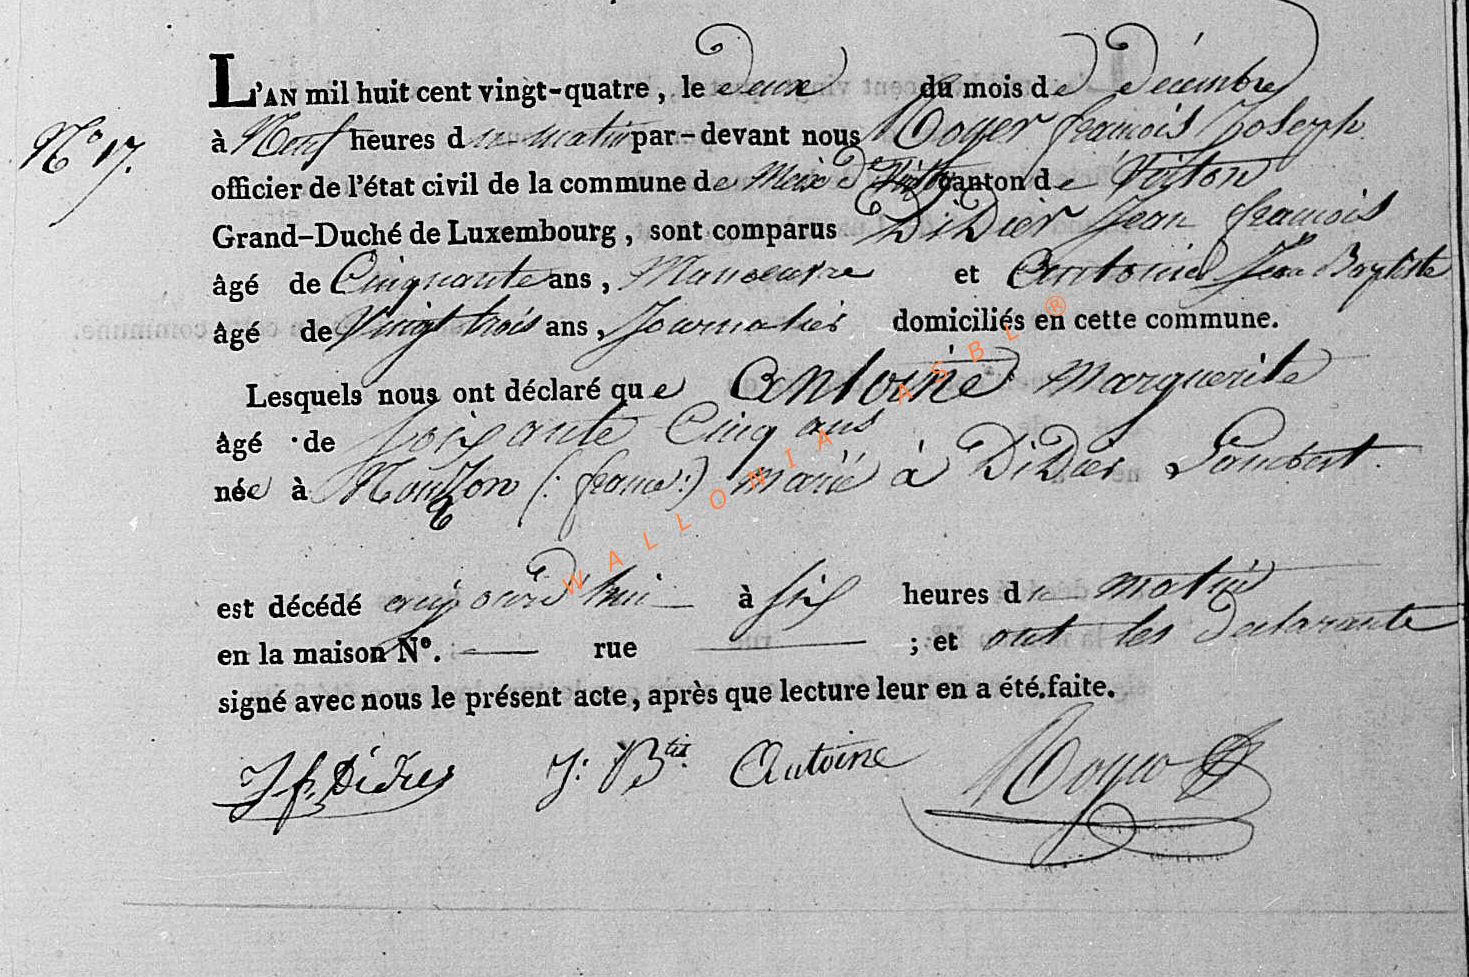 L'AN mil huit cent vingt-quatre, le deux du mois de Décembre
N° 17. à Neuf heures du matin par-devant nous Royer françois Joseph
officier de l'état civil de la commune de Meix d^t Virton canton de Virton
Grand-Duché de Luxembourg, sont comparus Didier Jean françois
âgé de Cinquante ans, Manoeuvre et Antoine Jean Baptiste
âgé de Vingt trois ans, Journalier domiciliés en cette commune.
Lesquels nous ont déclaré que Antoine Marguerite
âgé de soixante Cinq ans
née à Mouzon (: france :) marié à Didier Lambert.
est décédé aujourd'hui à six heures du matin
en la maison N°. — rue — ; et ont les declarants
signé avec nous le présent acte, après que lecture leur en a été faite.
J f. Didier J: B^te. Antoine Royer
WALLONIA ASBL ®